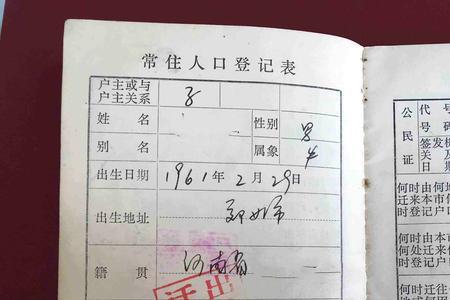 常住人口登记表
户主或与
户主关系 子
姓名 性别 男
别名 属象 牛
出生日期 1961年2月29日
出生地址 郑州市
籍贯 河南省
迁出
公民证
代
号
签发机
关及
日期
何时由何地
迁来本市何
时登记户口
何时由何
何处迁来
时登记户
何时迁往